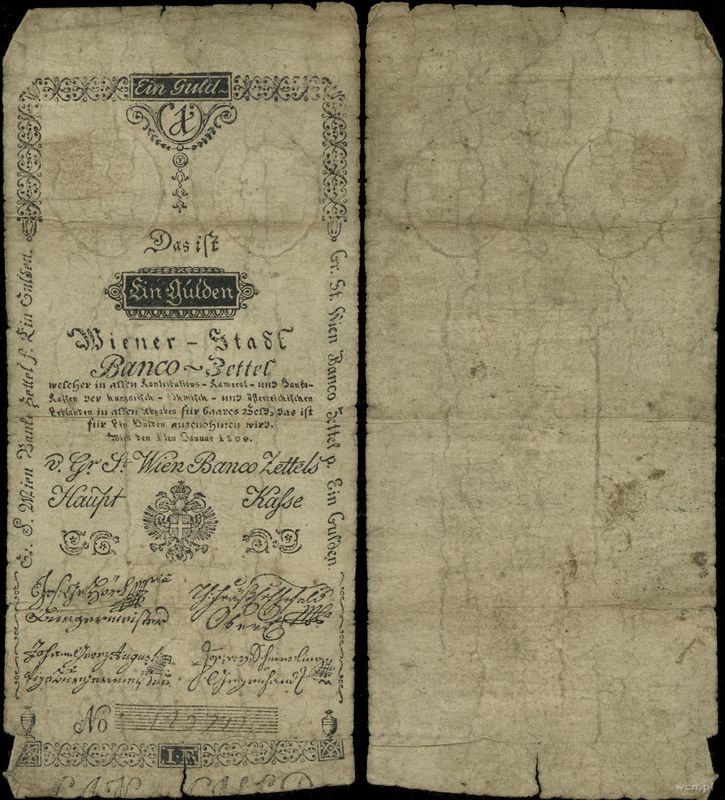 Ein Guld
1
Das ist
Ein Gulden
Wiener - Stadt
Banco - Zettel
welcher in allen Kontributions - Kameral - und Banko-
Kassen der hungarisch - böhmisch - und österreichischen
Erblanden in allen Abgaben für baares Geld, das ist
für Ein Gulden angenohmen wird.
Wien den 1ten Januar 1800.
v. Gr. St. Wien Banco Zettels
Haupt Kasse
Gr. S. Wien Banco Zettel p. Ein Gulden.
Gr. St. Wien Banco Zettel p. Ein Gulden.
Bürgermeister
Johann Georg August
Vizebürgermeister
No
1.F
wcn.pl